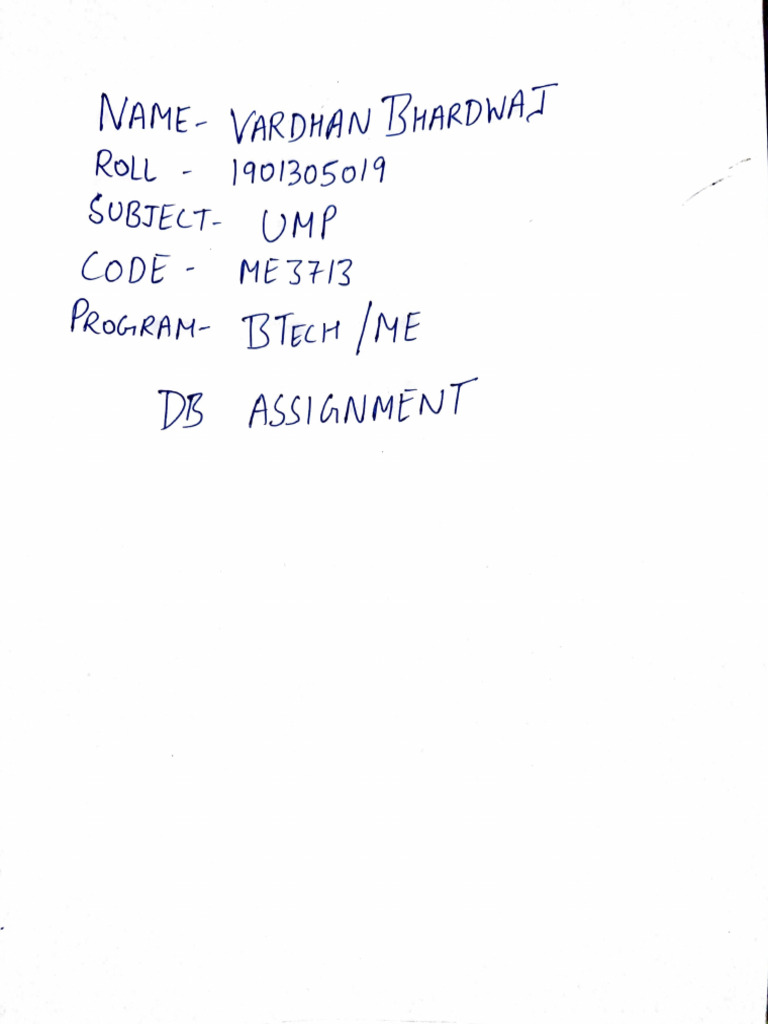 NAME- VARDHAN BHARDWAJ
ROLL - 1901305019
SUBJECT- UMP
CODE - ME3713
PROGRAM- BTECH/ME
DB ASSIGNMENT